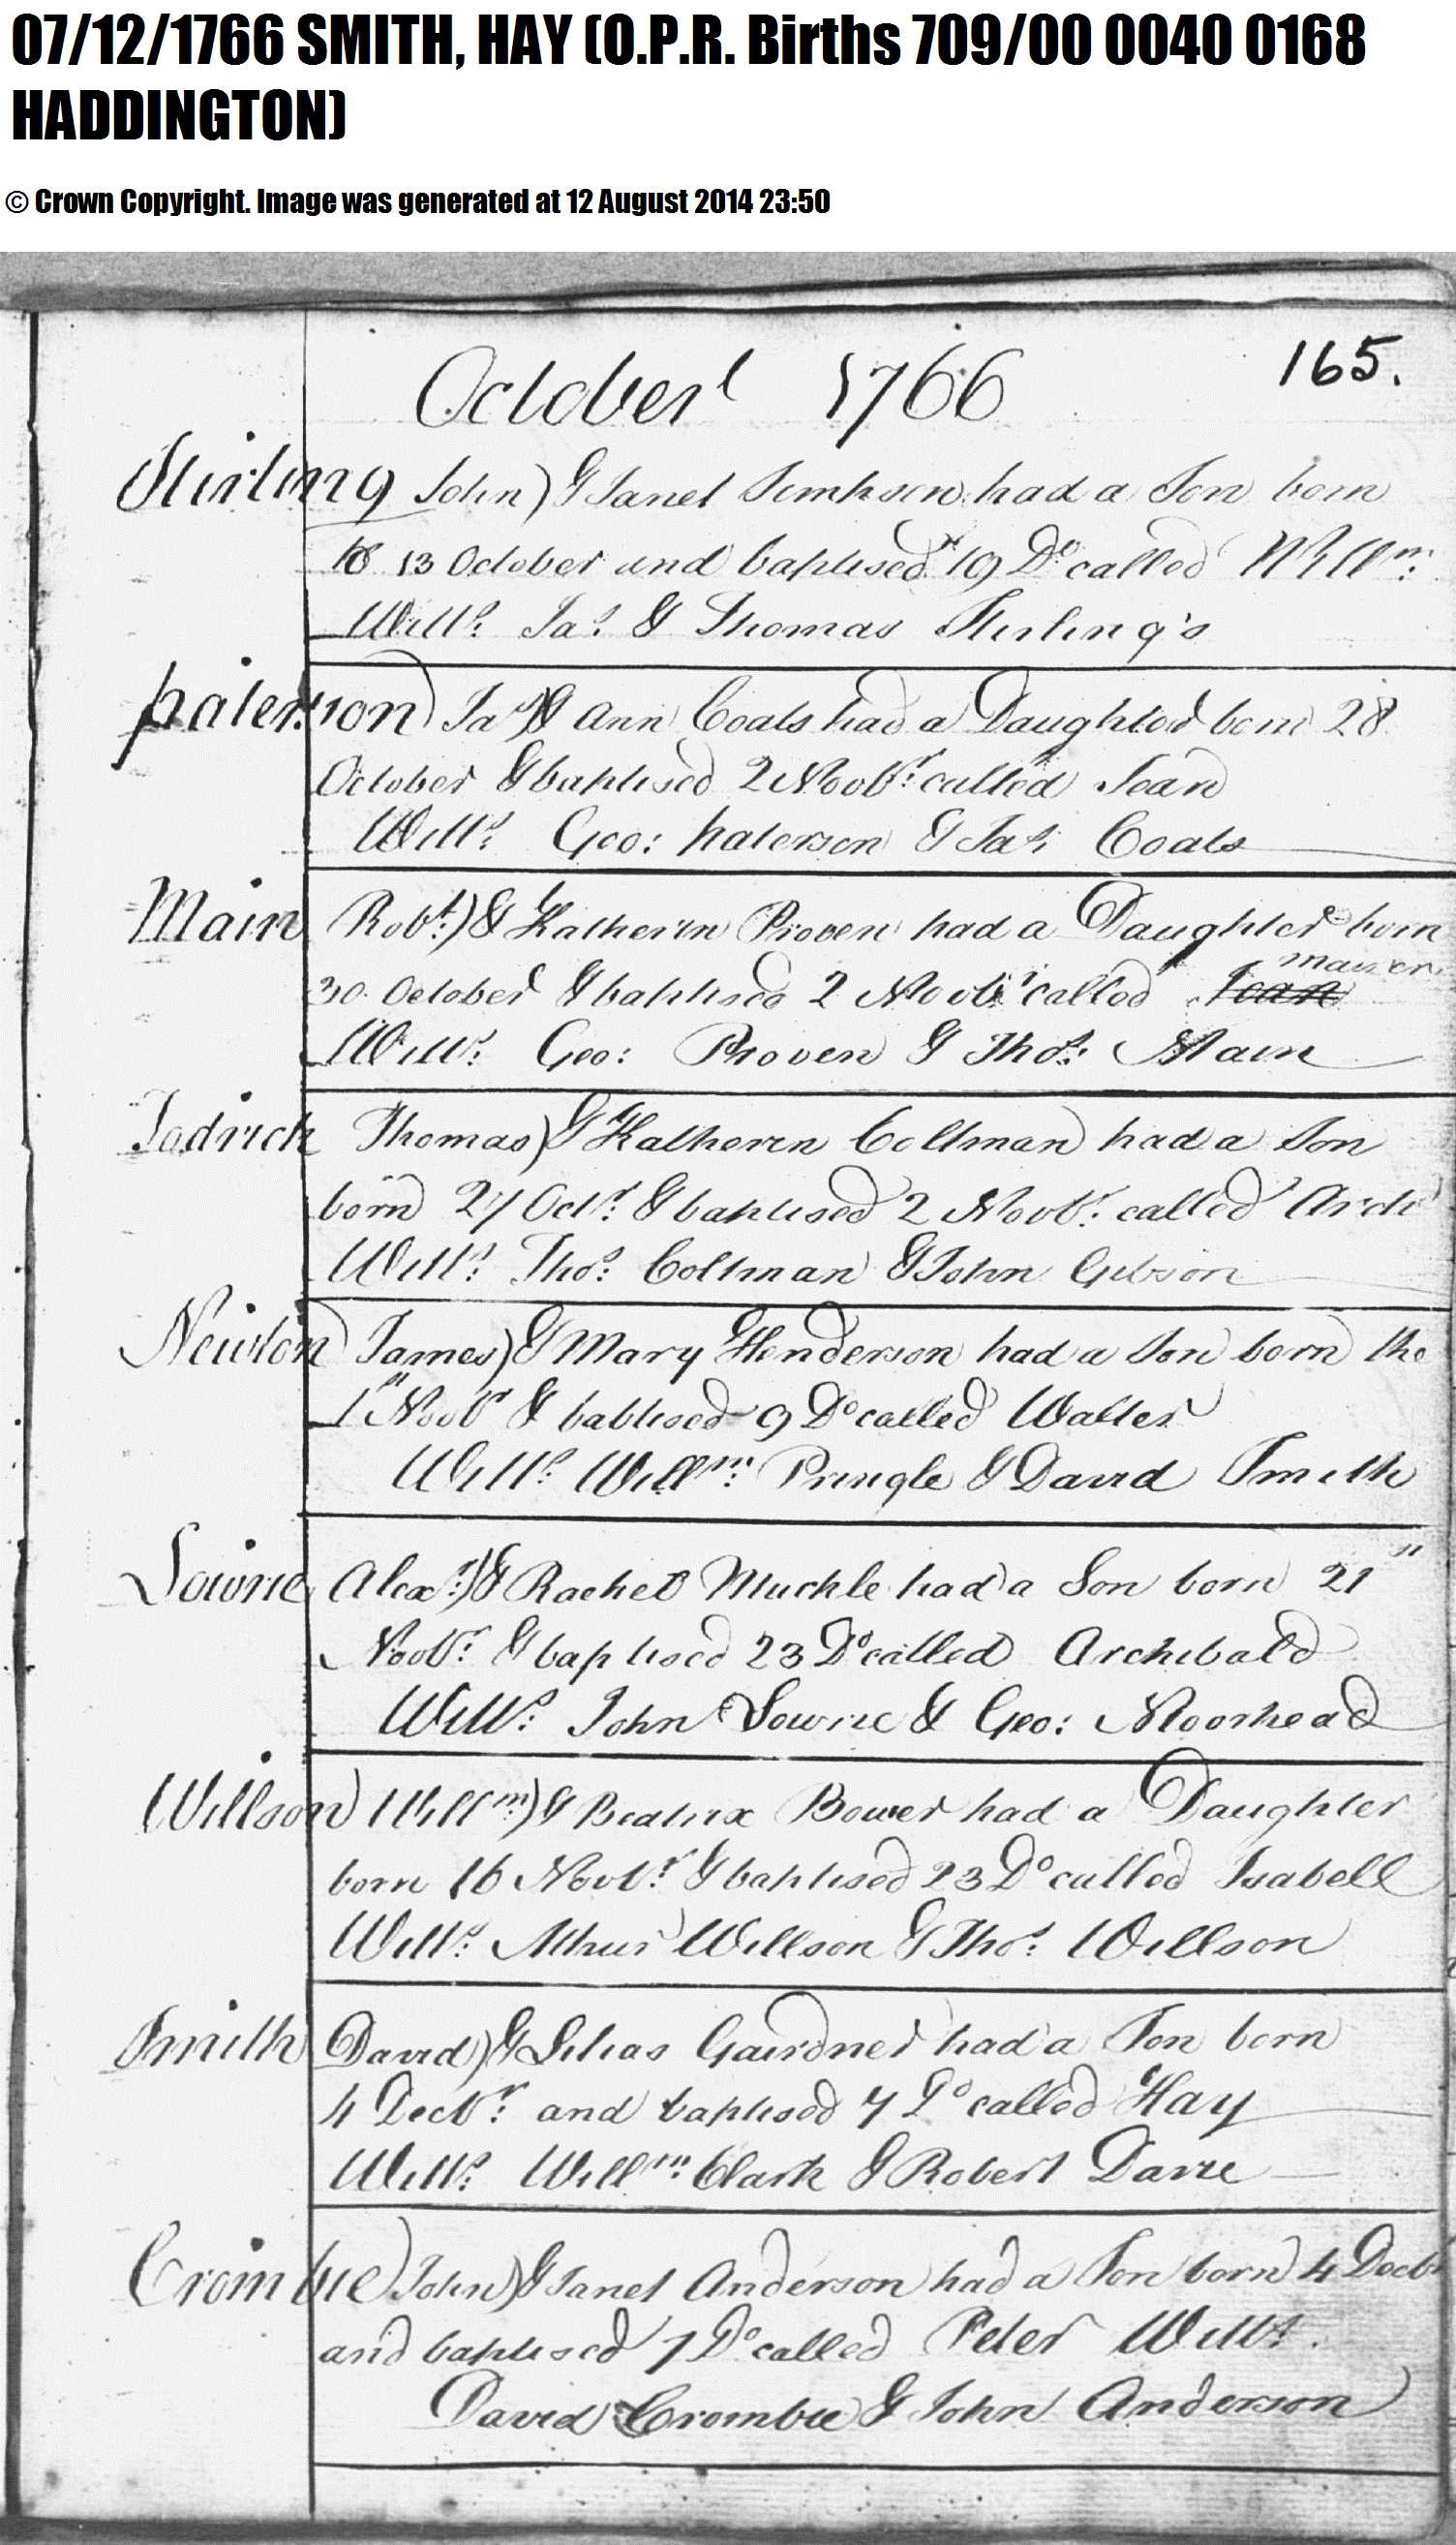 07/12/1766 SMITH, HAY (O.P.R. Births 709/00 0040 0168
HADDINGTON)
© Crown Copyright. Image was generated at 12 August 2014 23:50
October 1766
165.
Stirling John) & Janet Simpson had a Son born
13 October and baptised 19 Do called Willm:
Witts: Jas: & Thomas Stirling's
paterson) Jas) & Ann Coats had a Daughter born 28
October & baptised 2 Novbr: called Jean
Witts: Geo: paterson & Jas: Coats
Main Robt:) & Katherin Proven had a Daughter born
30 October & baptised 2 Novbr: called Jean
Marion
Witts: Geo: Proven & Thos: Main
Jadrick Thomas) & Katheren Coltman had a Son
born 27 Octr: & baptised 2 Novbr: called Archd
Witts: Thos: Coltman & John Gibson
Newton James) & Mary Henderson had a Son born the
1st Novbr & babtised 9 Do called Walter
Witts: Willm: Pringle & David Smith
Lowrie Alexr:) & Rachel Muckle had a Son born 21st
Novbr: & baptised 23 Do called Archibald
Witts: John Lowrie & Geo: Moorhead
Willson Willm:) & Beatrix Bower had a Daughter
born 16 Novbr: & baptised 23 Do called Isabell
Witts: Athur Willson & Thos: Willson
Smith David) & Lilias Gairdner had a Son born
4 Decbr: and baptised 7 Do called Hay
Witts: Willm: Clark & Robert Davie
Crombie) John) & Janet Anderson had a Son born 4 Decbr
and baptised 7 Do called Peter Witts.
David Crombie & John Anderson